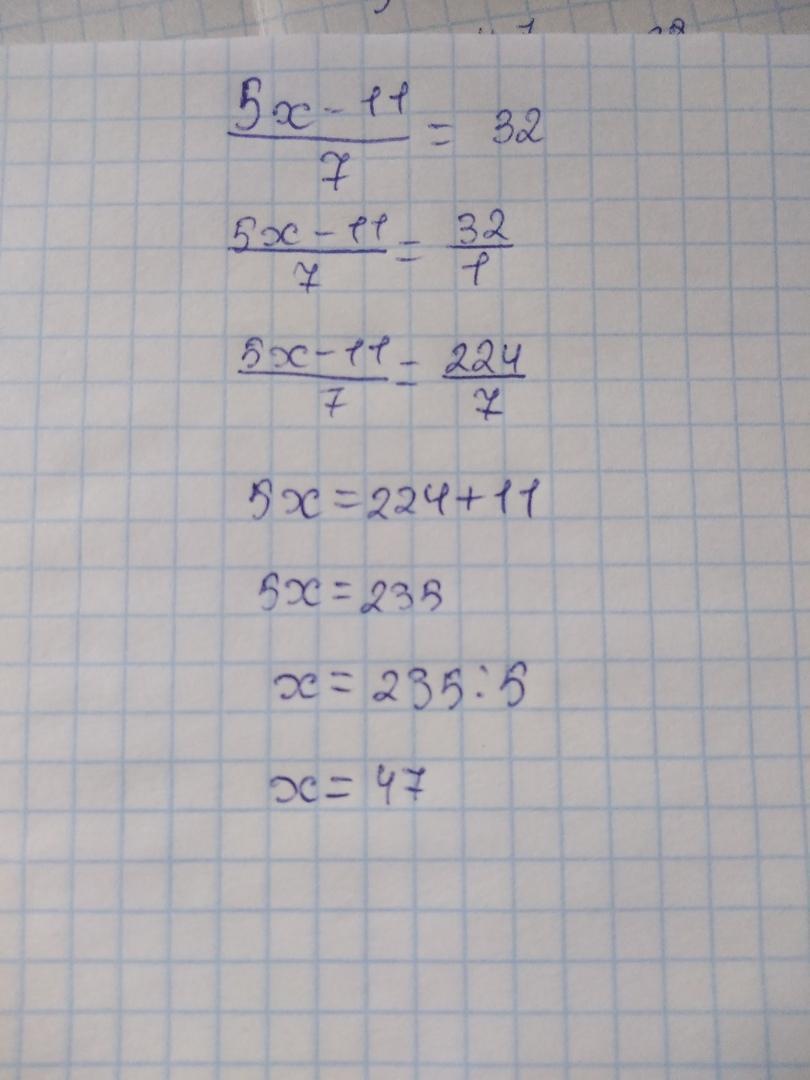 5x - 11 / 7 = 32
5x - 11 / 7 = 32 / 1
5x - 11 / 7 = 224 / 7
5x = 224 + 11
5x = 235
x = 235 : 5
x = 47